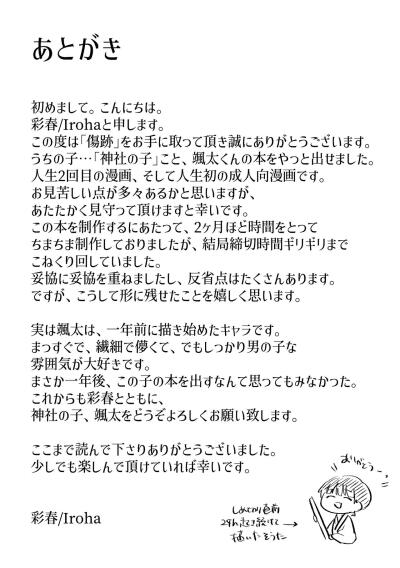 あとがき
初めまして。こんにちは。
彩春/Irohaと申します。
この度は「傷跡」をお手に取って頂き誠にありがとうございます。
うちの子…「神社の子」こと、颯太くんの本をやっと出せました。
人生2回目の漫画、そして人生初の成人向漫画です。
お見苦しい点が多々あるかと思いますが、
あたたかく見守って頂けますと幸いです。
この本を制作するにあたって、2ヶ月ほど時間をとって
ちまちま制作しておりましたが、結局締切時間ギリギリまで
こねくり回していました。
妥協に妥協を重ねましたし、反省点はたくさんあります。
ですが、こうして形に残せたことを嬉しく思います。
実は颯太は、一年前に描き始めたキャラです。
まっすぐで、繊細で儚くて、でもしっかり男の子な
雰囲気が大好きです。
まさか一年後、この子の本を出すなんて思ってもみなかった。
これからも彩春とともに、
神社の子、颯太をどうぞよろしくお願い致します。
ここまで読んで下さりありがとうございました。
少しでも楽しんで頂けていれば幸いです。
彩春/Iroha
ありがとう
しめきり直前
29h起き続けて
描いたそうた